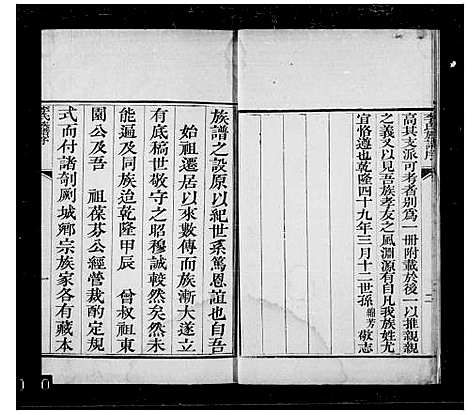 李氏族譜序
高其支派可考者別為一冊附載於後一以推親親
之義又以見吾族孝友之風淵源有自凡我族姓尤
宜恪遵也乾隆四十九年三月十二世孫錦芳敬志
二
族譜之設原以紀世系篤恩誼也自吾
始祖遷居以來數傳而族漸大遂立
有底稿世敬守之昭穆誠較然矣然未
能遍及同族迨乾隆甲辰 曾叔祖東
園公及吾 祖葆芬公經營裁酌定規
式而付諸剞劂城鄉宗族家各有藏本
李氏族譜序
一